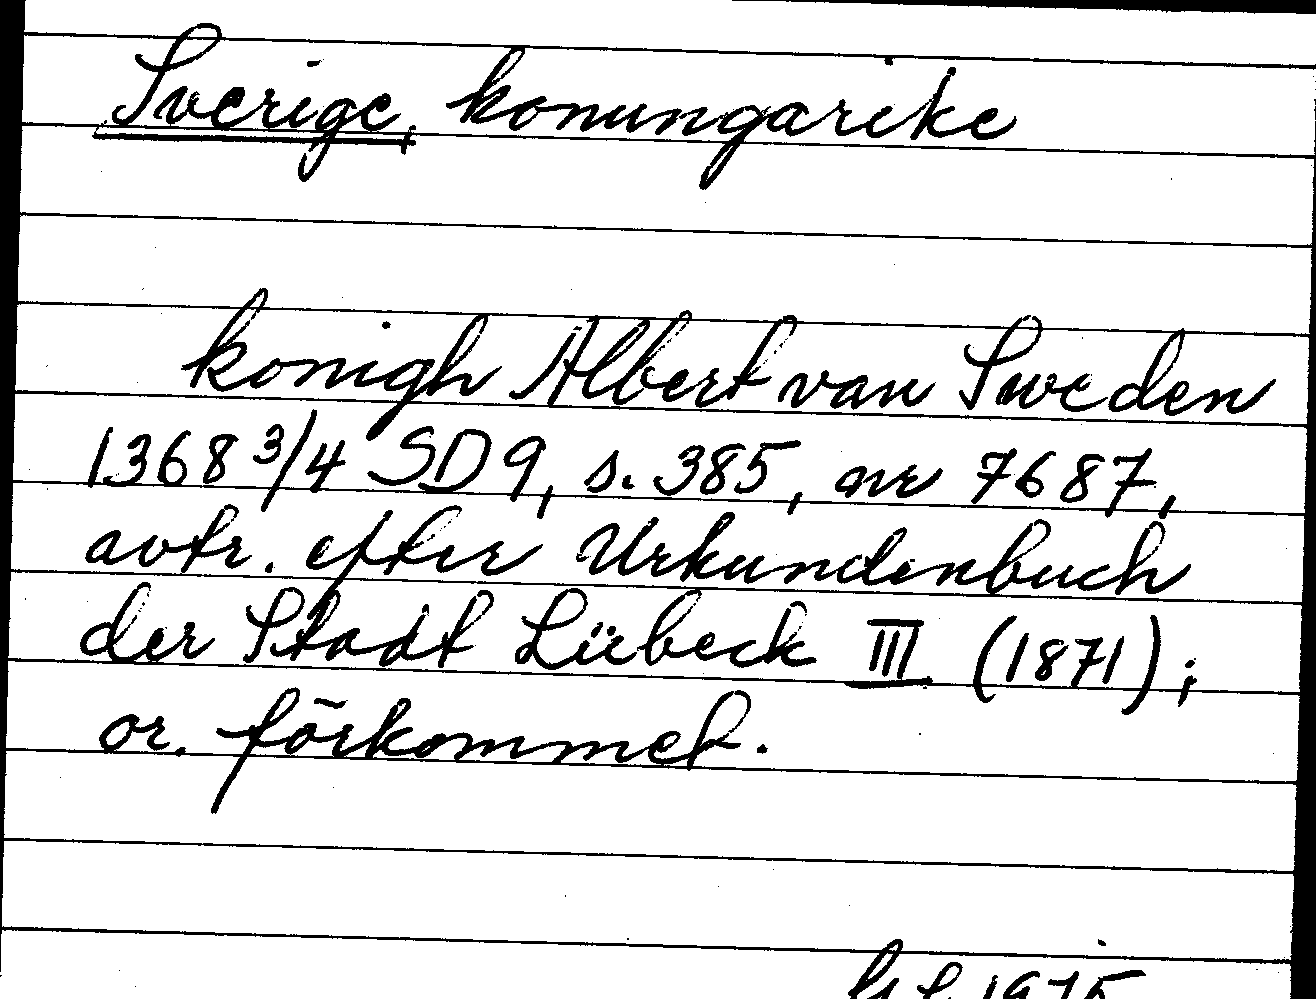 Sverige, konungarike
konigh Albert van Sweden
1368 3/4 SD 9, s. 385, nr 7687,
avtr. efter Urkundenbuch
der Stadt Lübeck III (1871);
or. förkommet.
1975